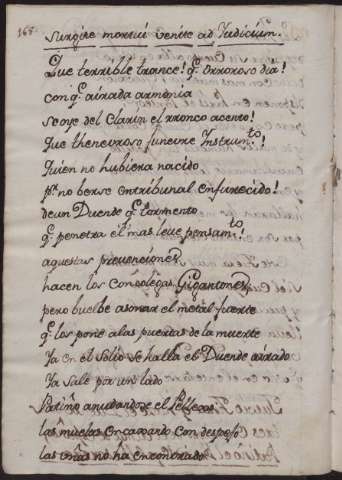 168.
Surgite mortui venite ad Judicium.
Que terrible trance! q.e orroroso dia!
con q.e airada armonia
se oye del Clarin el rronco acento!
que thenevroso funevre Instrum.to!
Quien no hubiera nacido
p.r no berse en tribunal enfurecido!
de un Duende q.e tormento
q.e penetra el mas leve pensam.to!
aquestas prevenciones
hacen los Consolegas Gigantones
pero buelbe asonar el metal fuerte
q.e los pone a las puertas de la muerte
Ya en el Solio se halla el Duende airado
Ya sale por un lado
Patiño anudandose el Pellejo
las muelas encaxando con despejo
las uñas no ha encontrado